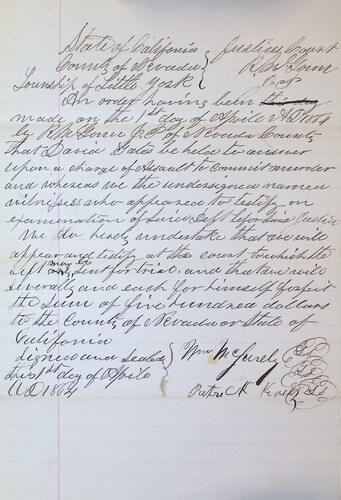 State of California } Justices Court
County of Nevada }
Township of Little York } J P
An order having been this day
made on the 1st day of Aprile AD 1864
by J P of Nevada County
that David be held to answer
upon a charge of Assault to Commit murder
and whereas we the undersigned named
witnesses who appeared to testify on
examination of Said Deft before Said Justice
We do hereby undertake that we will
appear and testify at the court to which the
Deft may be sent for trial and that we will
severally and each for himself forfeit
the sum of five hundred dollars
to the County of Nevada or State of
California
Signed and Sealed } Wm
this 1st day of Aprile }
A D 1864 } Patrick